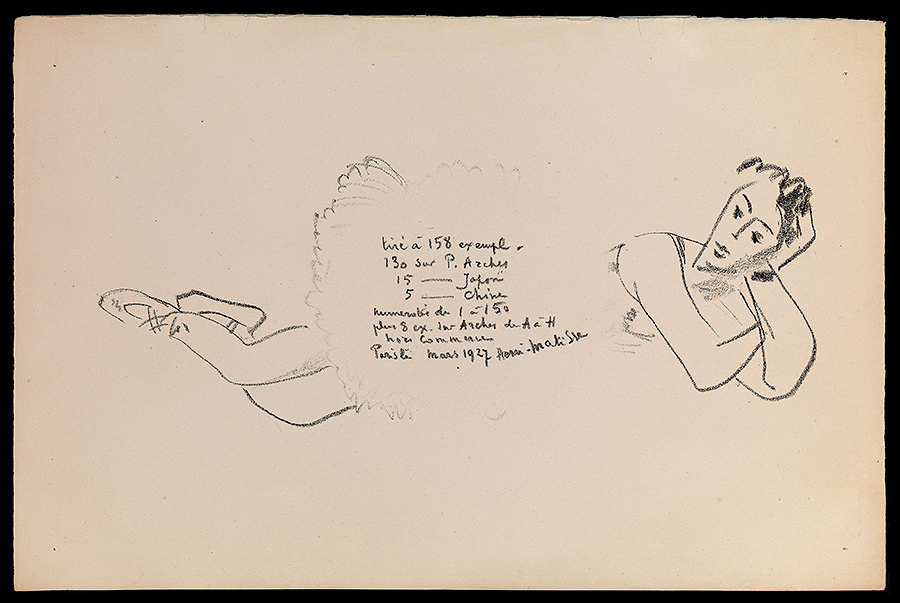 tiré à 158 exempl.
130 sur P. Arches
15 — Japon
5 — Chine
numerotés de 1 à 150
plus 8 ex. sur Arches de A à H
hors commerce
Paris le mars 1927 Henri-Matisse